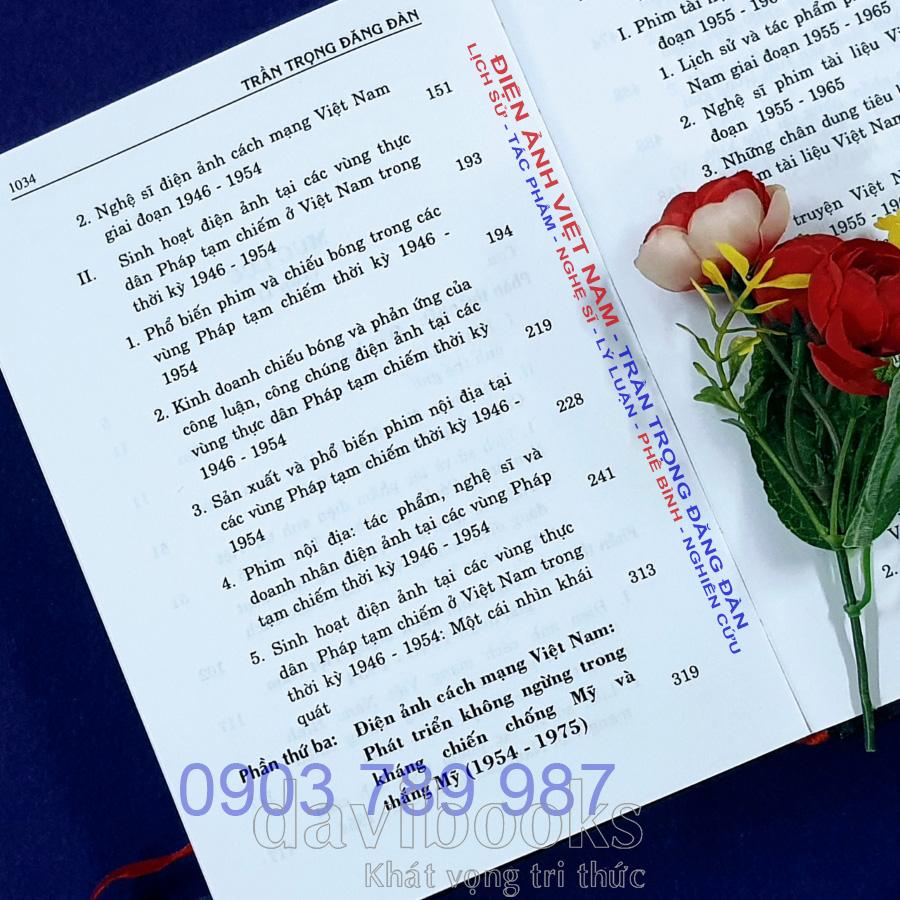 1034
TRẦN TRỌNG ĐĂNG ĐÀN
2. Nghệ sĩ điện ảnh cách mạng Việt Nam
giai đoạn 1946 - 1954
151
II. Sinh hoạt điện ảnh tại các vùng thực
dân Pháp tạm chiếm ở Việt Nam trong
thời kỳ 1946 - 1954
193
1. Phổ biến phim và chiếu bóng trong các
vùng Pháp tạm chiếm thời kỳ 1946 -
1954
194
2. Kinh doanh chiếu bóng và phản ứng của
công luận, công chúng điện ảnh tại các
vùng thực dân Pháp tạm chiếm thời kỳ
1946 - 1954
219
3. Sản xuất và phổ biến phim nội địa tại
các vùng Pháp tạm chiếm thời kỳ 1946 -
1954
228
4. Phim nội địa: tác phẩm, nghệ sĩ và
doanh nhân điện ảnh tại các vùng Pháp
tạm chiếm thời kỳ 1946 - 1954
241
5. Sinh hoạt điện ảnh tại các vùng thực
dân Pháp tạm chiếm ở Việt Nam trong
thời kỳ 1946 - 1954: Một cái nhìn khái
quát
313
Phần thứ ba: Điện ảnh cách mạng Việt Nam:
Phát triển không ngừng trong
kháng chiến chống Mỹ và
thắng Mỹ (1954 - 1975)
319
ĐIỆN ẢNH VIỆT NAM - TRẦN TRỌNG ĐĂNG ĐÀN
LỊCH SỬ - TÁC PHẨM - NGHỆ SĨ - LÝ LUẬN - PHÊ BÌNH - NGHIÊN CỨU
I. Phim tài
đoạn 1955 - 196
1. Lịch sử và tác phẩm
Nam giai đoạn 1955 - 1965
2. Nghệ sĩ phim tài liệu
đoạn 1955 - 1965
3. Những chân dung tiêu
tài liệu Việt Nam
truyện Việt
1955 - 196
2.
0903 789 987
davibooks
Khát vọng tri thức